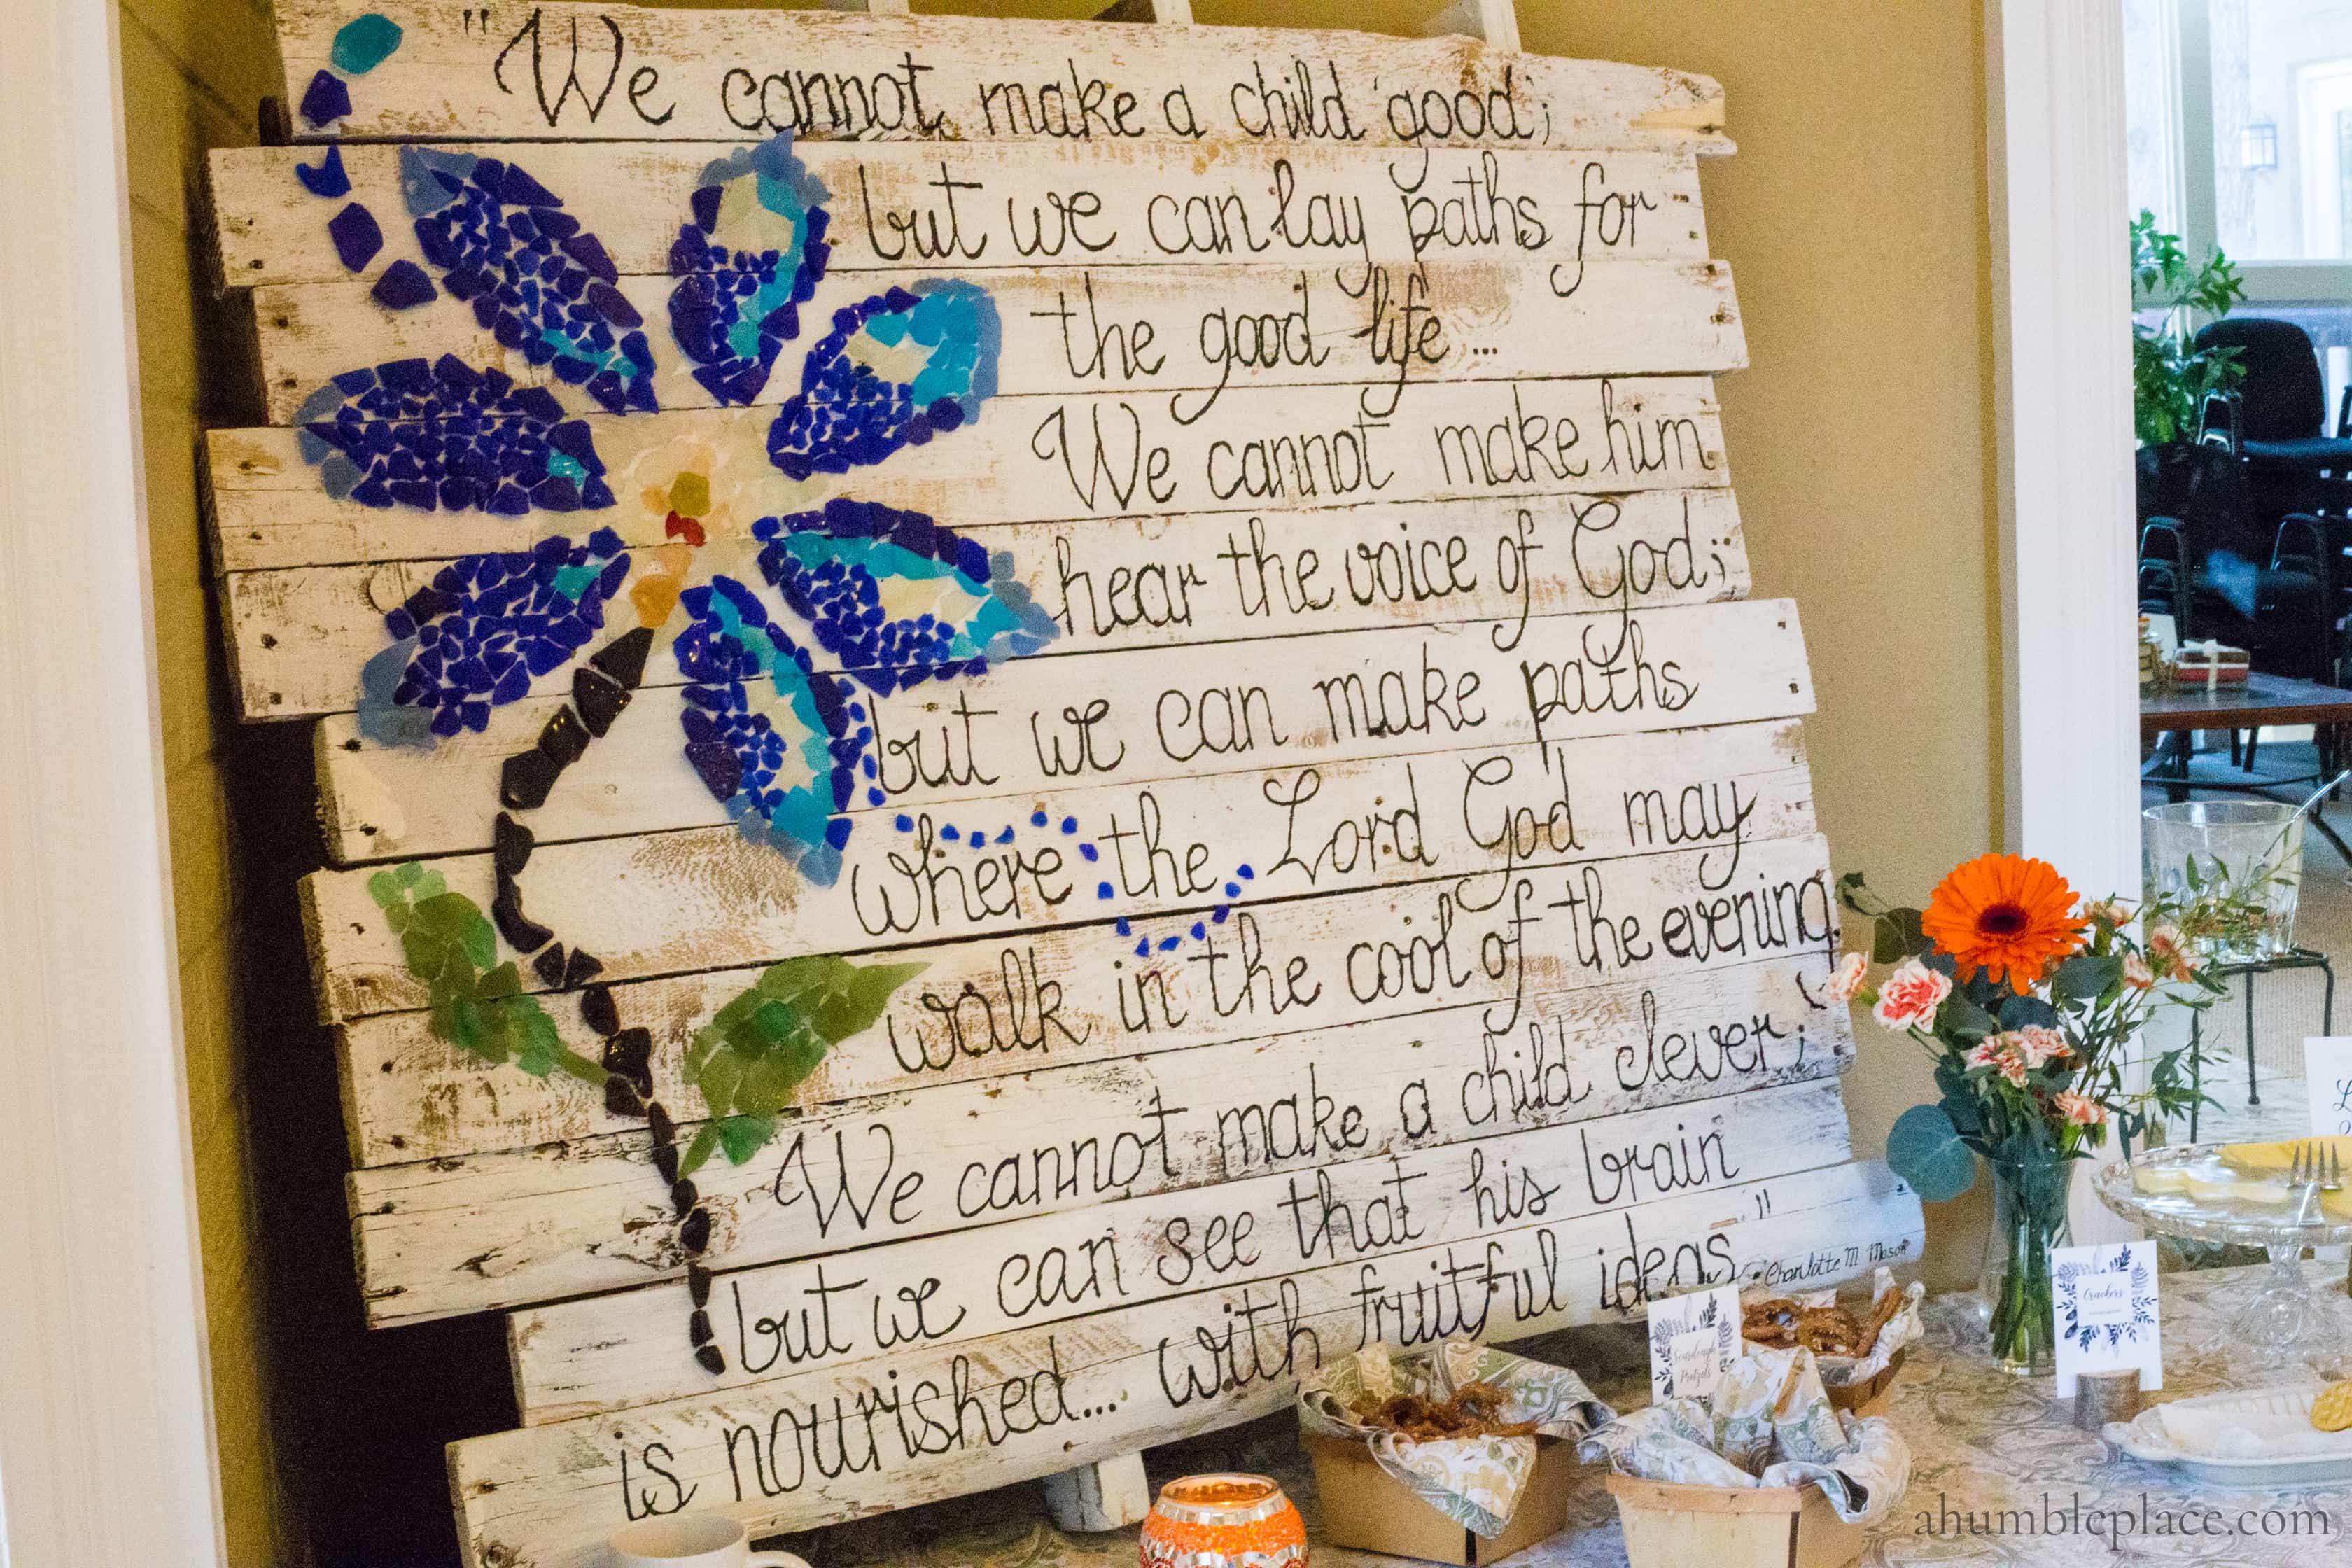 "We cannot make a child 'good';
but we can lay paths for
the good life ...
We cannot make him
hear the voice of God;
but we can make paths
where the Lord God may
walk in the cool of the evening.
We cannot make a child clever;
but we can see that his brain
is nourished... with fruitful ideas."
- Charlotte M Mason
Crackers
Sourdough
Pretzels
ahumbleplace.com